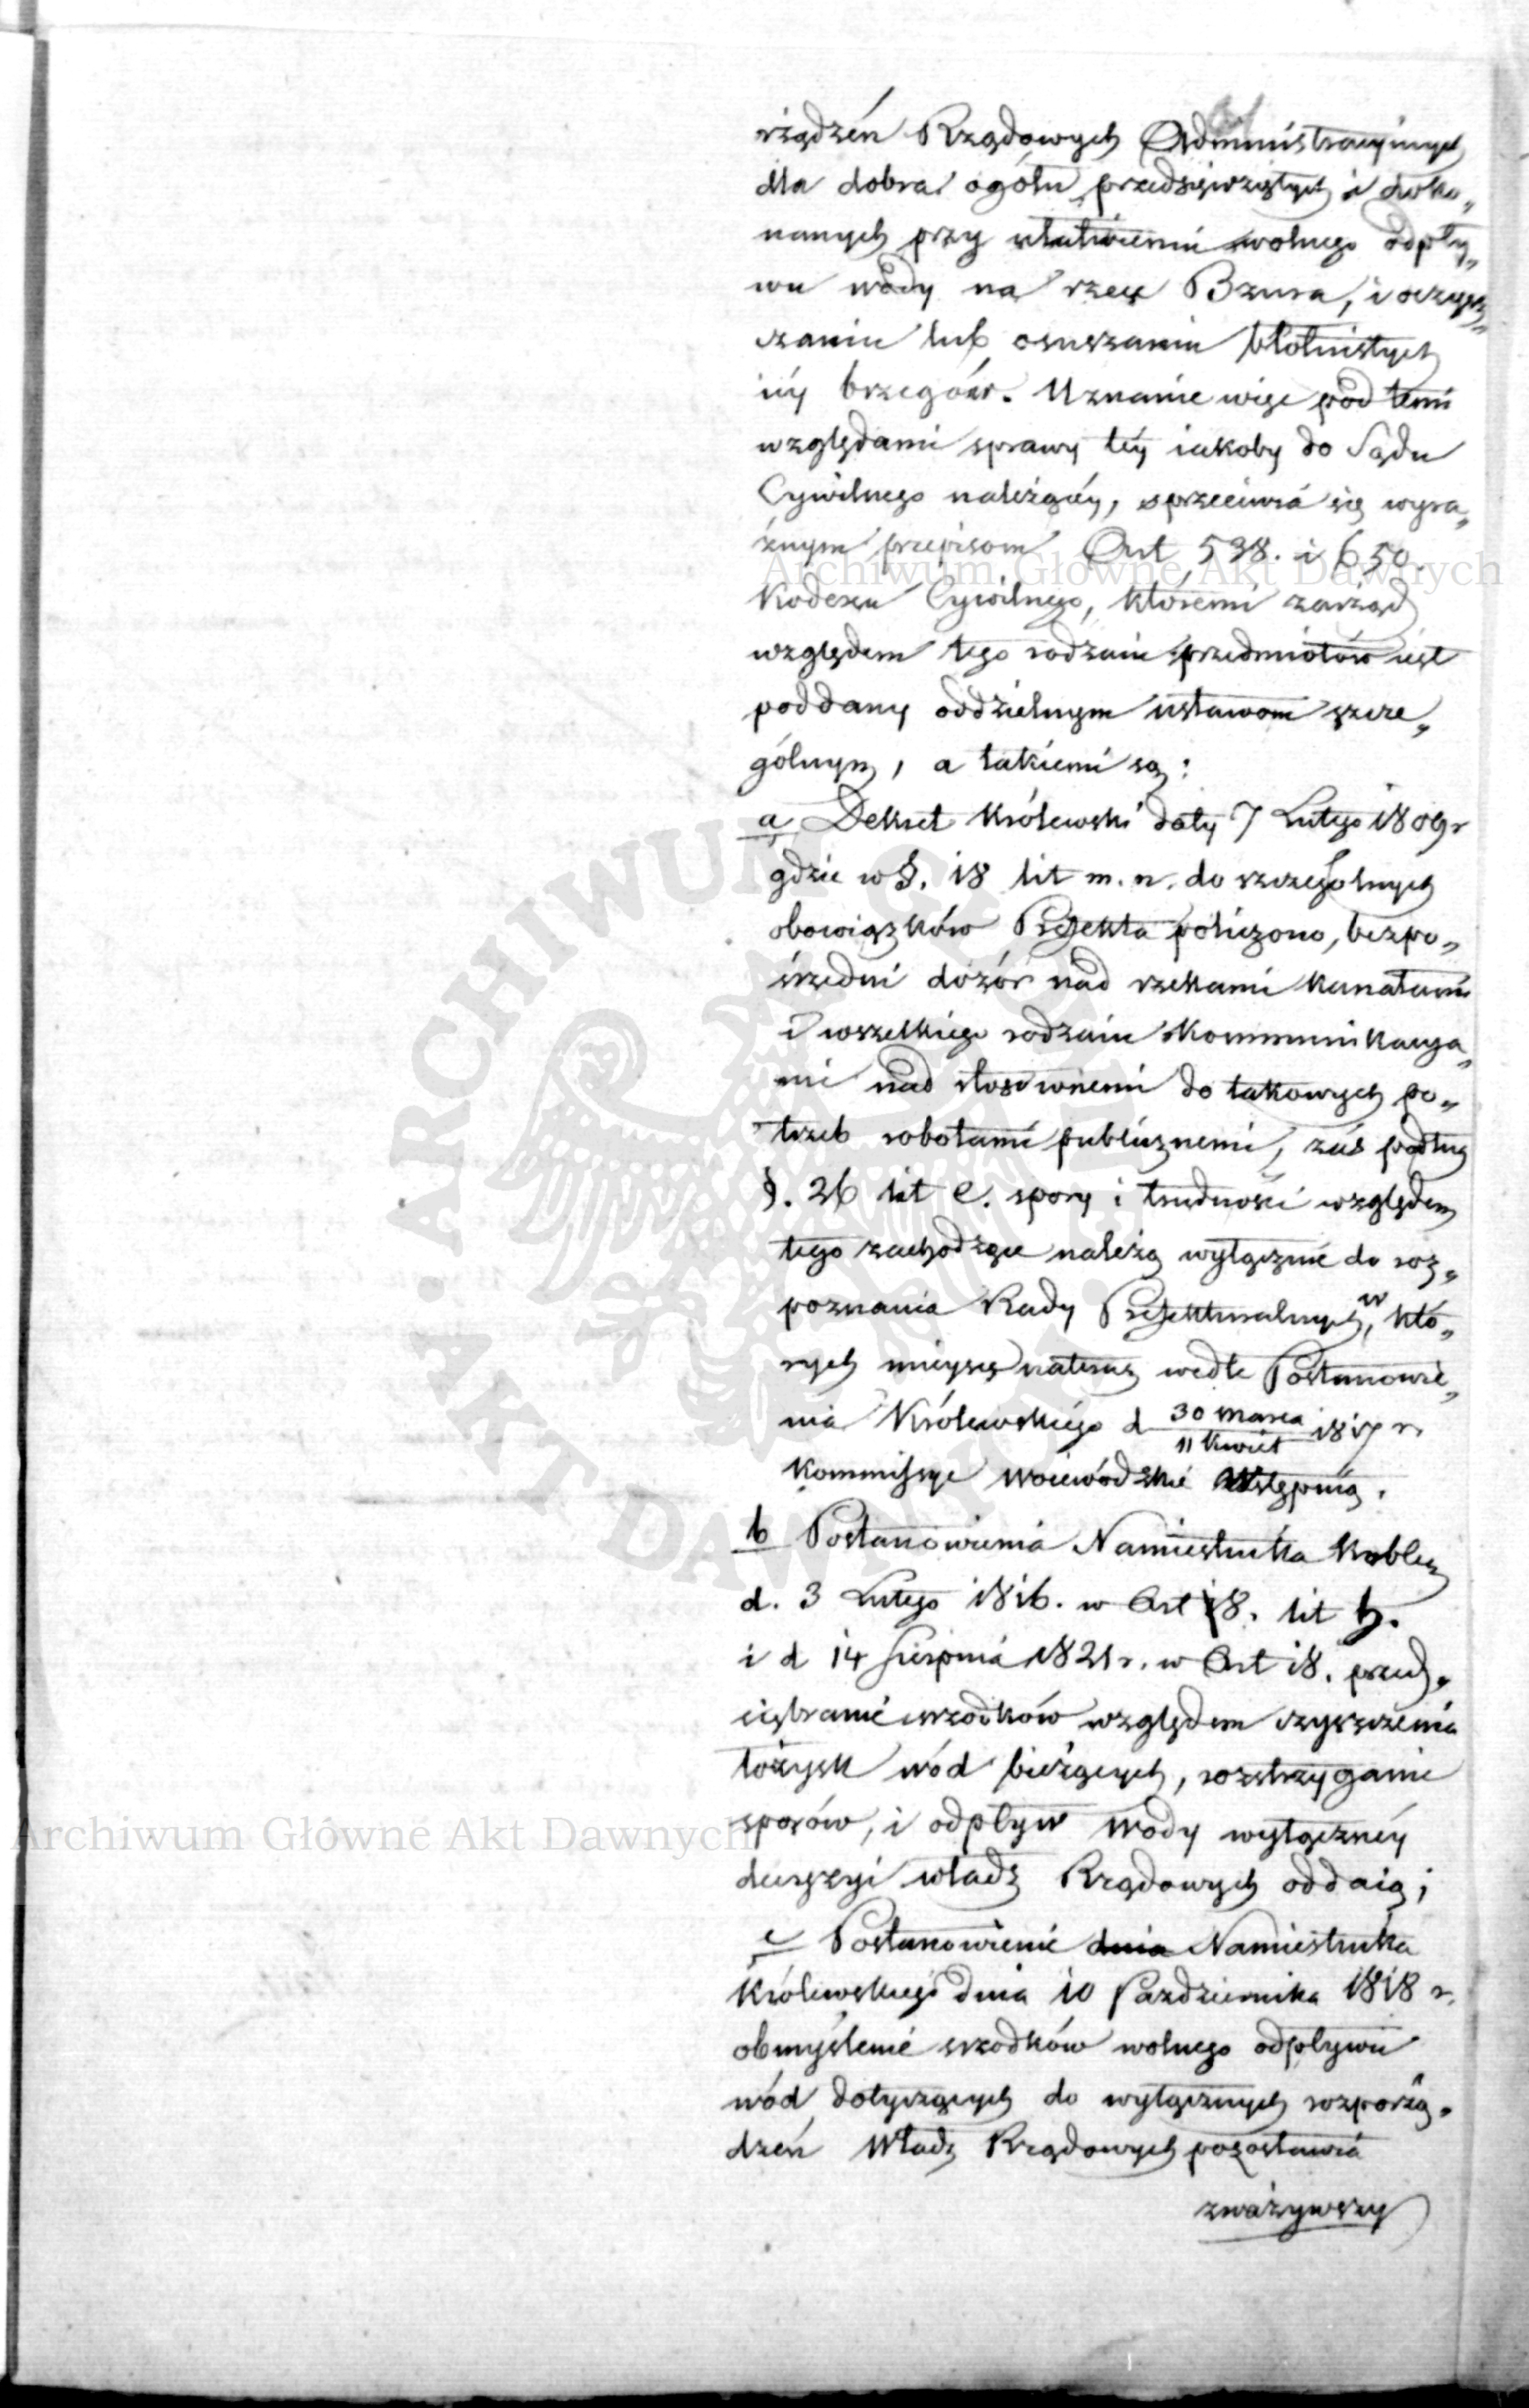 rządzeń Rządowych Administracyinych
dla dobra ogółu przedsięwziętych i doko„
nanych przy ułatwieniu wolnego odpły„
wu wody na rzece Bzura, i oczysz„
czaniu lub osuszaniu błotnistych
iéy brzegów. Uznanie więc pod temi
względami sprawy téy iakoby do Sądu
Cywilnego należącéy, sprzeciwia się wyra„
źnym przepisom Art 538. i 650.
Kodexu Cywilnego, któremi zarząd
względem tego rodzaiu przedmiotów iest
poddany oddzielnym ustawom szcze„
gólnym, a takiemi są:
a Dekret Królewski daty 7 Lutego 1809 r
gdzie w §. 18 lit m. n. do szczególnych
obowiązków Prefekta policzono, bezpo„
średni dozór nad rzekami kanałami
i wszelkiego rodzaiu kommunikacya„
mi nad stosownemi do takowych po„
trzeb robotami publicznemi, zaś podług
§. 26 lit e. spory i trudności względem
tego zachodzące należą wyłącznie do roz„
poznania Rady Prefekturalnych, w któ„
rych mieysce natenczas wedle Postanowie„
nia Królewskiego d 30 Marca / 11 Kwiet 1817 r.
Kommissye Woiewódzkie wstępuią.
b Postanowienia Namiestnika Królew
d. 3 Lutego 1816. w Art 18. lit h.
i d 14 Sierpnia 1821 r. w Art 18. przed„
siębranie srzodków względem czyszczenia
łożysk wód bieżących, rozstrzyganie
sporów, i odpływ wody wyłącznéy
decyzyi władz Rządowych oddaią;
c Postanowienie dnia Namiestnika
Królewskiego dnia 10 Pazdziernika 1818 r.
obmyślenie srzodków wolnego odpływu
wód dotyczących do wyłącznych rozporzą„
dzeń Władz Rządowych pozostawia
zważywszy
Archiwum Główne Akt Dawnych
Archiwum Główne Akt Dawnych
ARCHIWUM GŁÓWNE AKT DAWNYCH